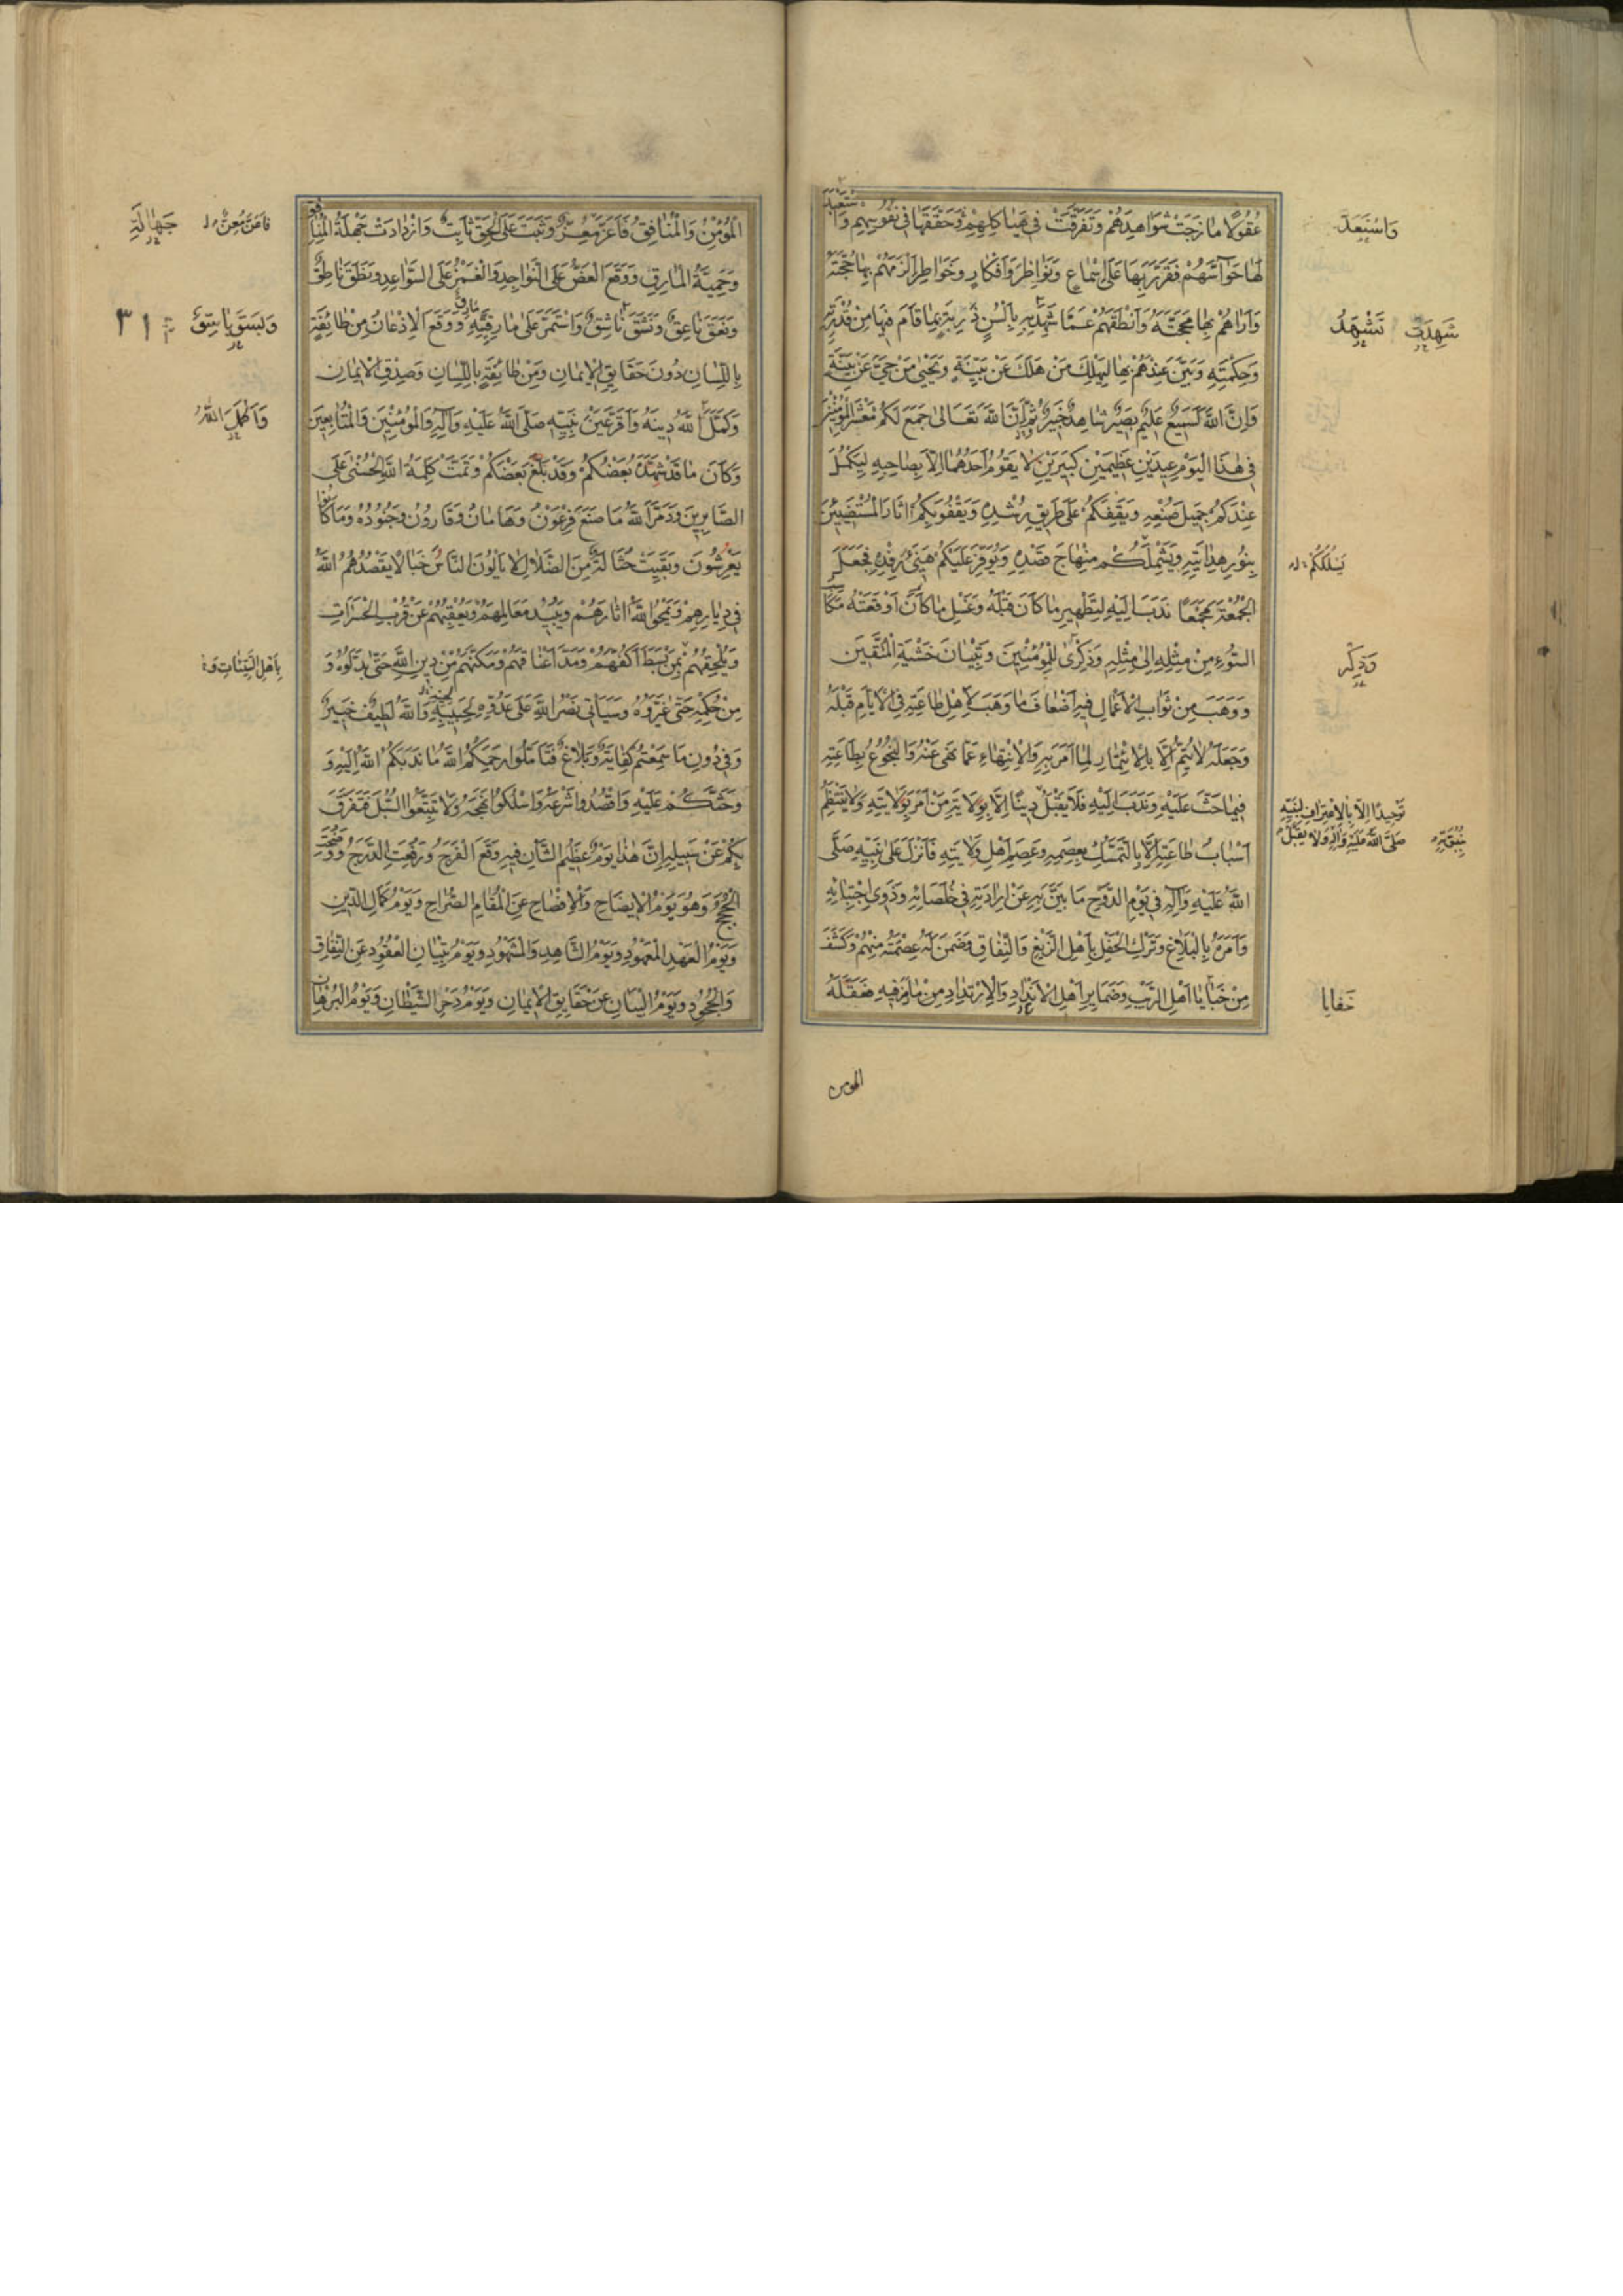 عُقُولًا مَازَجَتْ شَوَاهِدَهُمْ وَتَفَرَّقَتْ فِي هَيَاكِلِهِمْ وَحَقَّقَهَا فِي نُفُوسِهِمْ وَاسْتَعْبَدَ
لَهَا حَوَاسَّهُمْ فَقَرَّرَ بِهَا عَلَى أَسْمَاعٍ وَنَوَاظِرَ وَأَفْكَارٍ وَخَوَاطِرَ أَلْزَمَهُمْ بِهَا حُجَّتَهُ
وَأَرَاهُمْ بِهَا مَحَجَّتَهُ وَأَنْطَقَهُمْ عَمَّا شَهِدَ بِهِ بِأَلْسُنٍ ذَرِبَةٍ بِمَا قَامَ فِيهَا مِنْ قُدْرَتِهِ
وَحِكْمَتِهِ وَبَيَّنَ عِنْدَهُمْ بِهَا لِيَهْلِكَ مَنْ هَلَكَ عَنْ بَيِّنَةٍ وَيَحْيَىٰ مَنْ حَيَّ عَنْ بَيِّنَةٍ
وَإِنَّ اللّٰهَ لَسَمِيعٌ عَلِيمٌ بَصِيرٌ شَاهِدٌ خَبِيرٌ ثُمَّ إِنَّ اللّٰهَ تَعَالَىٰ جَمَعَ لَكُمْ مَعْشَرَ الْمُؤْمِنِينَ
فِي هٰذَا الْيَوْمِ عِيدَيْنِ عَظِيمَيْنِ كَبِيرَيْنِ لَا يَقُومُ أَحَدُهُمَا إِلَّا بِصَاحِبِهِ لِيُكْمِلَ
عِنْدَكُمْ جَمِيلَ صُنْعِهِ وَيَقِفَكُمْ عَلَىٰ طَرِيقِ رُشْدِهِ وَيَقْفُوَ بِكُمْ اٰثَارَ الْمُسْتَضِيئِينَ
بِنُورِ هِدَايَتِهِ وَيَشْمَلَكُمْ مِنْهَاجَ قَصْدِهِ وَيُوَفِّرَ عَلَيْكُمْ هَنِيءَ رِفْدِهِ فَجَعَلَ
الْجُمُعَةَ مَجْمَعًا نَدَبَ إِلَيْهِ لِتَطْهِيرِ مَا كَانَ قَبْلَهُ وَغَسْلِ مَا كَانَ أَوْقَعَتْهُ مَكَاسِبُ
السُّوءِ مِنْ مِثْلِهِ إِلَىٰ مِثْلِهِ وَذِكْرَىٰ لِلْمُؤْمِنِينَ وَتِبْيَانَ خَشْيَةِ الْمُتَّقِينَ
وَوَهَبَ مِنْ ثَوَابِ الْأَعْمَالِ فِيهِ أَضْعَافَ مَا وَهَبَ لِأَهْلِ طَاعَتِهِ فِي الْأَيَّامِ قَبْلَهُ
وَجَعَلَهُ لَا يَتِمُّ إِلَّا بِالْاِئْتِمَارِ لِمَا أَمَرَ بِهِ وَالْاِنْتِهَاءِ عَمَّا نَهَىٰ عَنْهُ وَالْبُخُوعِ بِطَاعَتِهِ
فِيمَا حَثَّ عَلَيْهِ وَنَدَبَ إِلَيْهِ فَلَا يَقْبَلُ دِينًا إِلَّا بِوِلَايَةِ مَنْ أَمَرَ بِوِلَايَتِهِ وَلَا يَنْتَظِمُ
أَسْبَابُ طَاعَتِهِ إِلَّا بِالتَّمَسُّكِ بِعِصَمِهِ وَعِصَمِ أَهْلِ وِلَايَتِهِ فَأَنْزَلَ عَلَىٰ نَبِيِّهِ صَلَّى
اللّٰهُ عَلَيْهِ وَآلِهِ فِي يَوْمِ الدَّوْحِ مَا بَيَّنَ بِهِ عَنْ إِرَادَتِهِ فِي خُلَصَائِهِ وَذَوِي اجْتِبَائِهِ
وَأَمَرَهُ بِالْبَلَاغِ وَتَرْكِ الْحَفْلِ بِأَهْلِ الزَّيْغِ وَالنِّفَاقِ وَضَمِنَ لَهُ عِصْمَتَهُ مِنْهُمْ وَكَشَفَ
مِنْ خَبَايَا أَهْلِ الرَّيْبِ وَضَمَايِرِ أَهْلِ الْاِرْتِدَادِ مَا رَمَزَ فِيهِ فَعَقَلَهُ
وَاسْتَعَدَّ
شَهِدَتْ تَشْهَدُ
يَسْلُكَكُمْ
وَذِكْرَ
تَوْحِيدًا إِلَّا بِالْاِعْتِرَافِ لِنَبِيِّهِ
صَلَّى اللّٰهُ عَلَيْهِ وَآلِهِ وَلَا يَقْبَلُ
بِنُبُوَّتِهِ
خَفَايَا
المومن
الْمُؤْمِنُ وَالْمُنَافِقُ فَأَعَزَّ مُعِزٌّ وَثَبَتَ عَلَى الْحَقِّ ثَابِتٌ وَازْدَادَتْ جَهْلَةُ الْمُنَافِقِ
وَحَمِيَّةُ الْمَارِقِ وَوَقَعَ الْعَضُّ عَلَى النَّوَاجِدِ وَالْغَمْزُ عَلَى السَّوَاعِدِ وَنَطَقَ نَاطِقٌ
وَنَعَقَ نَاعِقٌ وَنَشَقَ نَاشِقٌ وَاسْتَمَرَّ عَلَىٰ مَارِقِيَّتِهِ مَارِقٌ وَوَقَعَ الْإِذْعَانُ مِنْ طَائِفَةٍ
بِاللِّسَانِ دُونَ حَقَايِقِ الْإِيمَانِ وَمِنْ طَائِفَةٍ بِاللِّسَانِ وَصِدْقِ الْإِيمَانِ
وَكَمَّلَ اللّٰهُ دِينَهُ وَأَقَرَّ عَيْنَ نَبِيِّهِ صَلَّى اللّٰهُ عَلَيْهِ وَآلِهِ وَالْمُؤْمِنِينَ وَالْمُتَابِعِينَ
وَكَانَ مَا قَدْ شَهِدَهُ بَعْضُكُمْ وَقَدْ بَلَغَ بَعْضَكُمْ وَتَمَّتْ كَلِمَةُ اللّٰهِ الْحُسْنَىٰ عَلَى
الصَّابِرِينَ وَدَمَّرَ اللّٰهُ مَا صَنَعَ فِرْعَوْنُ وَهَامَانُ وَقَارُونُ وَجُنُودُهُ وَمَا كَانُوا
يَعْرِشُونَ وَبَقِيَتْ حُثَالَةٌ مِنَ الضَّلَالِ لَا يَأْلُونَ النَّاسَ خَبَالًا يَقْصُدُهُمُ اللّٰهُ
فِي دِيَارِهِمْ وَيَمْحُو اللّٰهُ اٰثَارَهُمْ وَيُبِيدُ مَعَالِمَهُمْ وَيُعْقِبُهُمْ عَنْ قُرْبِ الْحَسَرَاتِ
وَيُلْحِقُهُمْ بِمَنْ بَسَطَ أَكُفَّهُمْ وَمَدَّ أَعْنَاقَهُمْ وَمَكَّنَهُمْ مِنْ دِينِ اللّٰهِ حَتَّىٰ بَدَّلُوهُ وَ
مِنْ حُكْمِهِ حَتَّىٰ غَيَّرُوهُ وَسَيَأْتِي نَصْرُ اللّٰهِ عَلَىٰ عَدُوِّهِ لِحِينِهِ وَاللّٰهُ لَطِيفٌ خَبِيرٌ
وَفِي دُونِ مَا سَمِعْتُمْ كِفَايَةٌ وَبَلَاغٌ فَتَأَمَّلُوا رَحِمَكُمُ اللّٰهُ مَا نَدَبَكُمُ اللّٰهُ إِلَيْهِ وَ
وَحَثَّكُمْ عَلَيْهِ وَاقْصُدُوا شَرْعَهُ وَاسْلُكُوا نَهْجَهُ وَلَا تَتَّبِعُوا السُّبُلَ فَتَفَرَّقَ
بِكُمْ عَنْ سَبِيلِهِ إِنَّ هٰذَا يَوْمٌ عَظِيمُ الشَّأْنِ فِيهِ وَقَعَ الْفَرَجُ وَرُفِعَتِ الدَّرَجُ وَوَضَحَتِ
الْحُجَجُ وَهُوَ يَوْمُ الْإِيضَاحِ وَالْإِفْصَاحِ عَنِ الْمَقَامِ الصُّرَاحِ وَيَوْمُ كَمَالِ الدِّينِ
وَيَوْمُ الْعَهْدِ الْمَعْهُودِ وَيَوْمُ الشَّاهِدِ وَالْمَشْهُودِ وَيَوْمُ تِبْيَانِ الْعُقُودِ عَنِ النِّفَاقِ
وَالْجُحُودِ وَيَوْمُ الْبَيَانِ عَنْ حَقَايِقِ الْإِيمَانِ وَيَوْمُ دَحْرِ الشَّيْطَانِ وَيَوْمُ الْبُرْهَانِ
جَهَالَةُ
وَبَسَقَ بَاسِقٌ
٣١
وَأَكْمَلَ اللّٰهُ